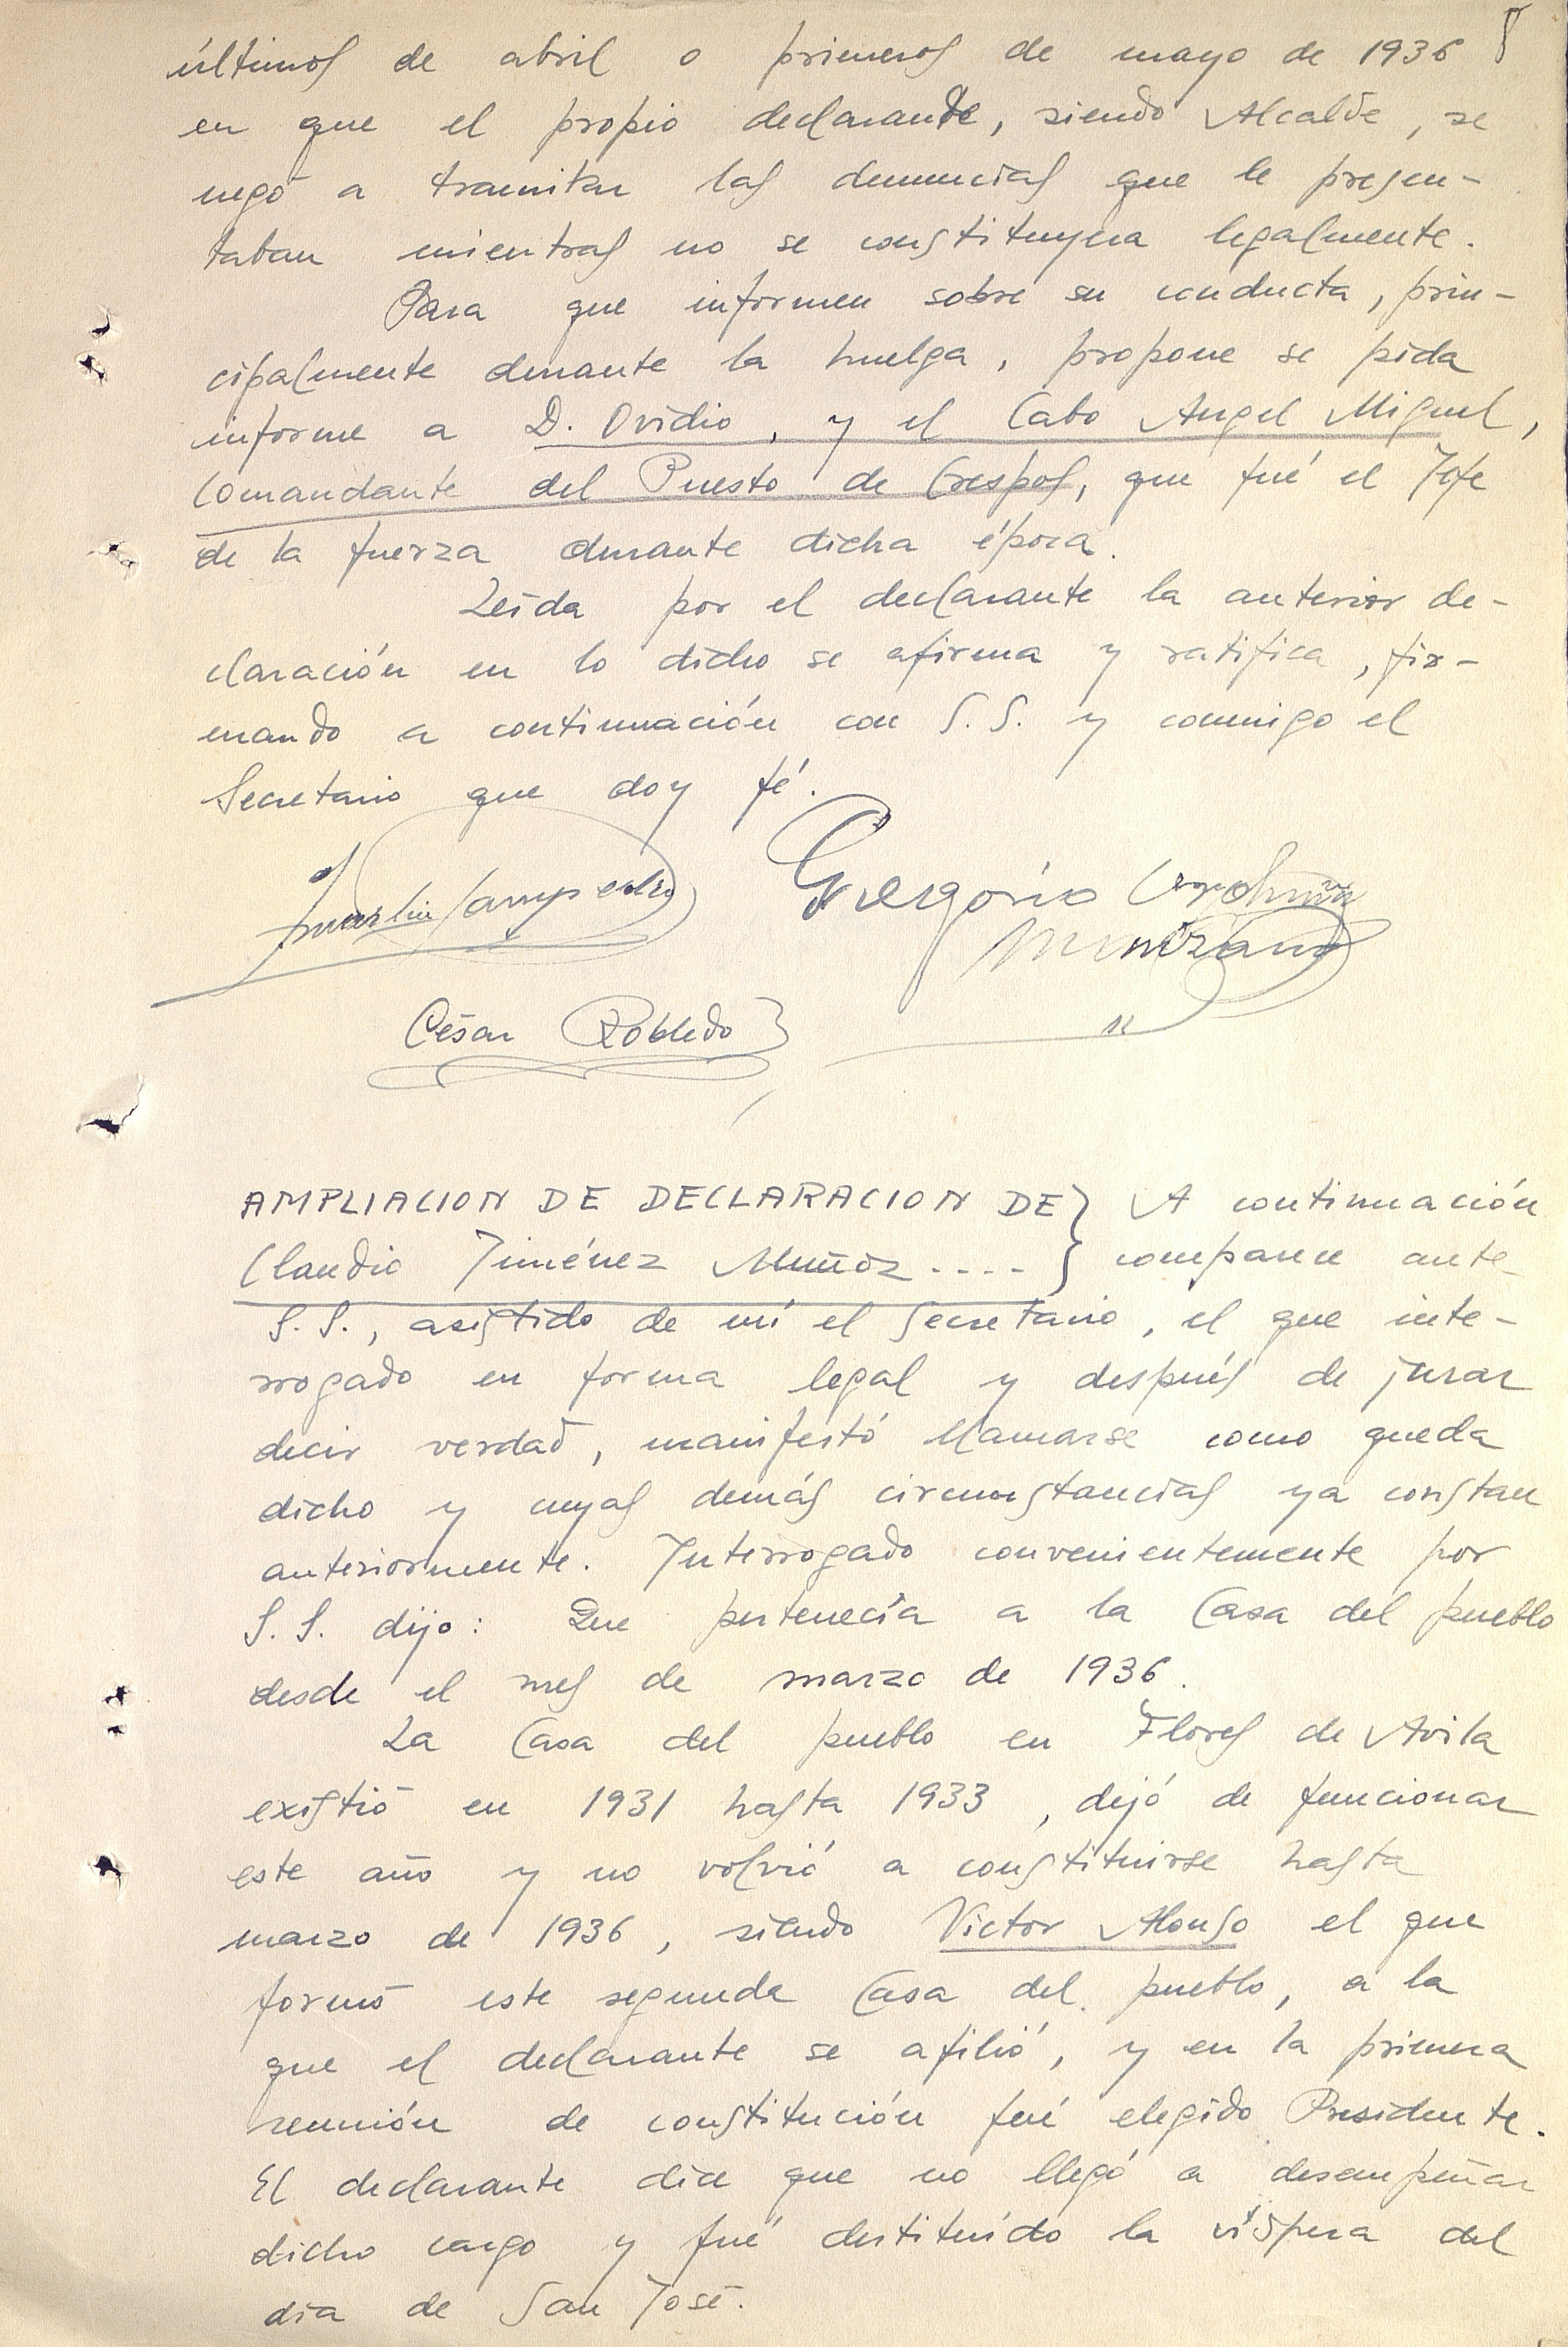 últimos de abril o primeros de mayo de 1936
en que el propio declarante, siendo Alcalde, se
negó a tramitar las denuncias que le presen-
taban mientras no se constituyera legalmente.
Para que informen sobre su conducta, prin-
cipalmente durante la huelga, propone se pida
informe a D. Ovidio, y el Cabo Angel Miguel,
Comandante del Puesto de Crespos, que fué el Jefe
de la fuerza durante dicha época.
Leída por el declarante la anterior de-
claración en lo dicho se afirma y ratifica, fir-
mando a continuación con S.S. y conmigo el
Secretario que doy fé.
Gregorio
César Robledo
AMPLIACION DE DECLARACION DE } A continuación
Claudio Jiménez Muñoz .... } comparece ante
S.S., asistido de mí el Secretario, el que inte-
rrogado en forma legal y después de jurar
decir verdad, manifestó llamarse como queda
dicho y cuyas demás circunstancias ya constan
anteriormente. Interrogado convenientemente por
S.S. dijo: Que pertenecía a la Casa del pueblo
desde el mes de marzo de 1936.
La Casa del pueblo en Flores de Avila
existió en 1931 hasta 1933, dejó de funcionar
este año y no volvió a constituirse hasta
marzo de 1936, siendo Victor Alonso el que
formó este segunda Casa del pueblo, a la
que el declarante se afilió, y en la primera
reunión de constitución fué elegido Presidente.
El declarante dice que no llegó a desempeñar
dicho cargo y fué destituído la víspera del
día de San José.